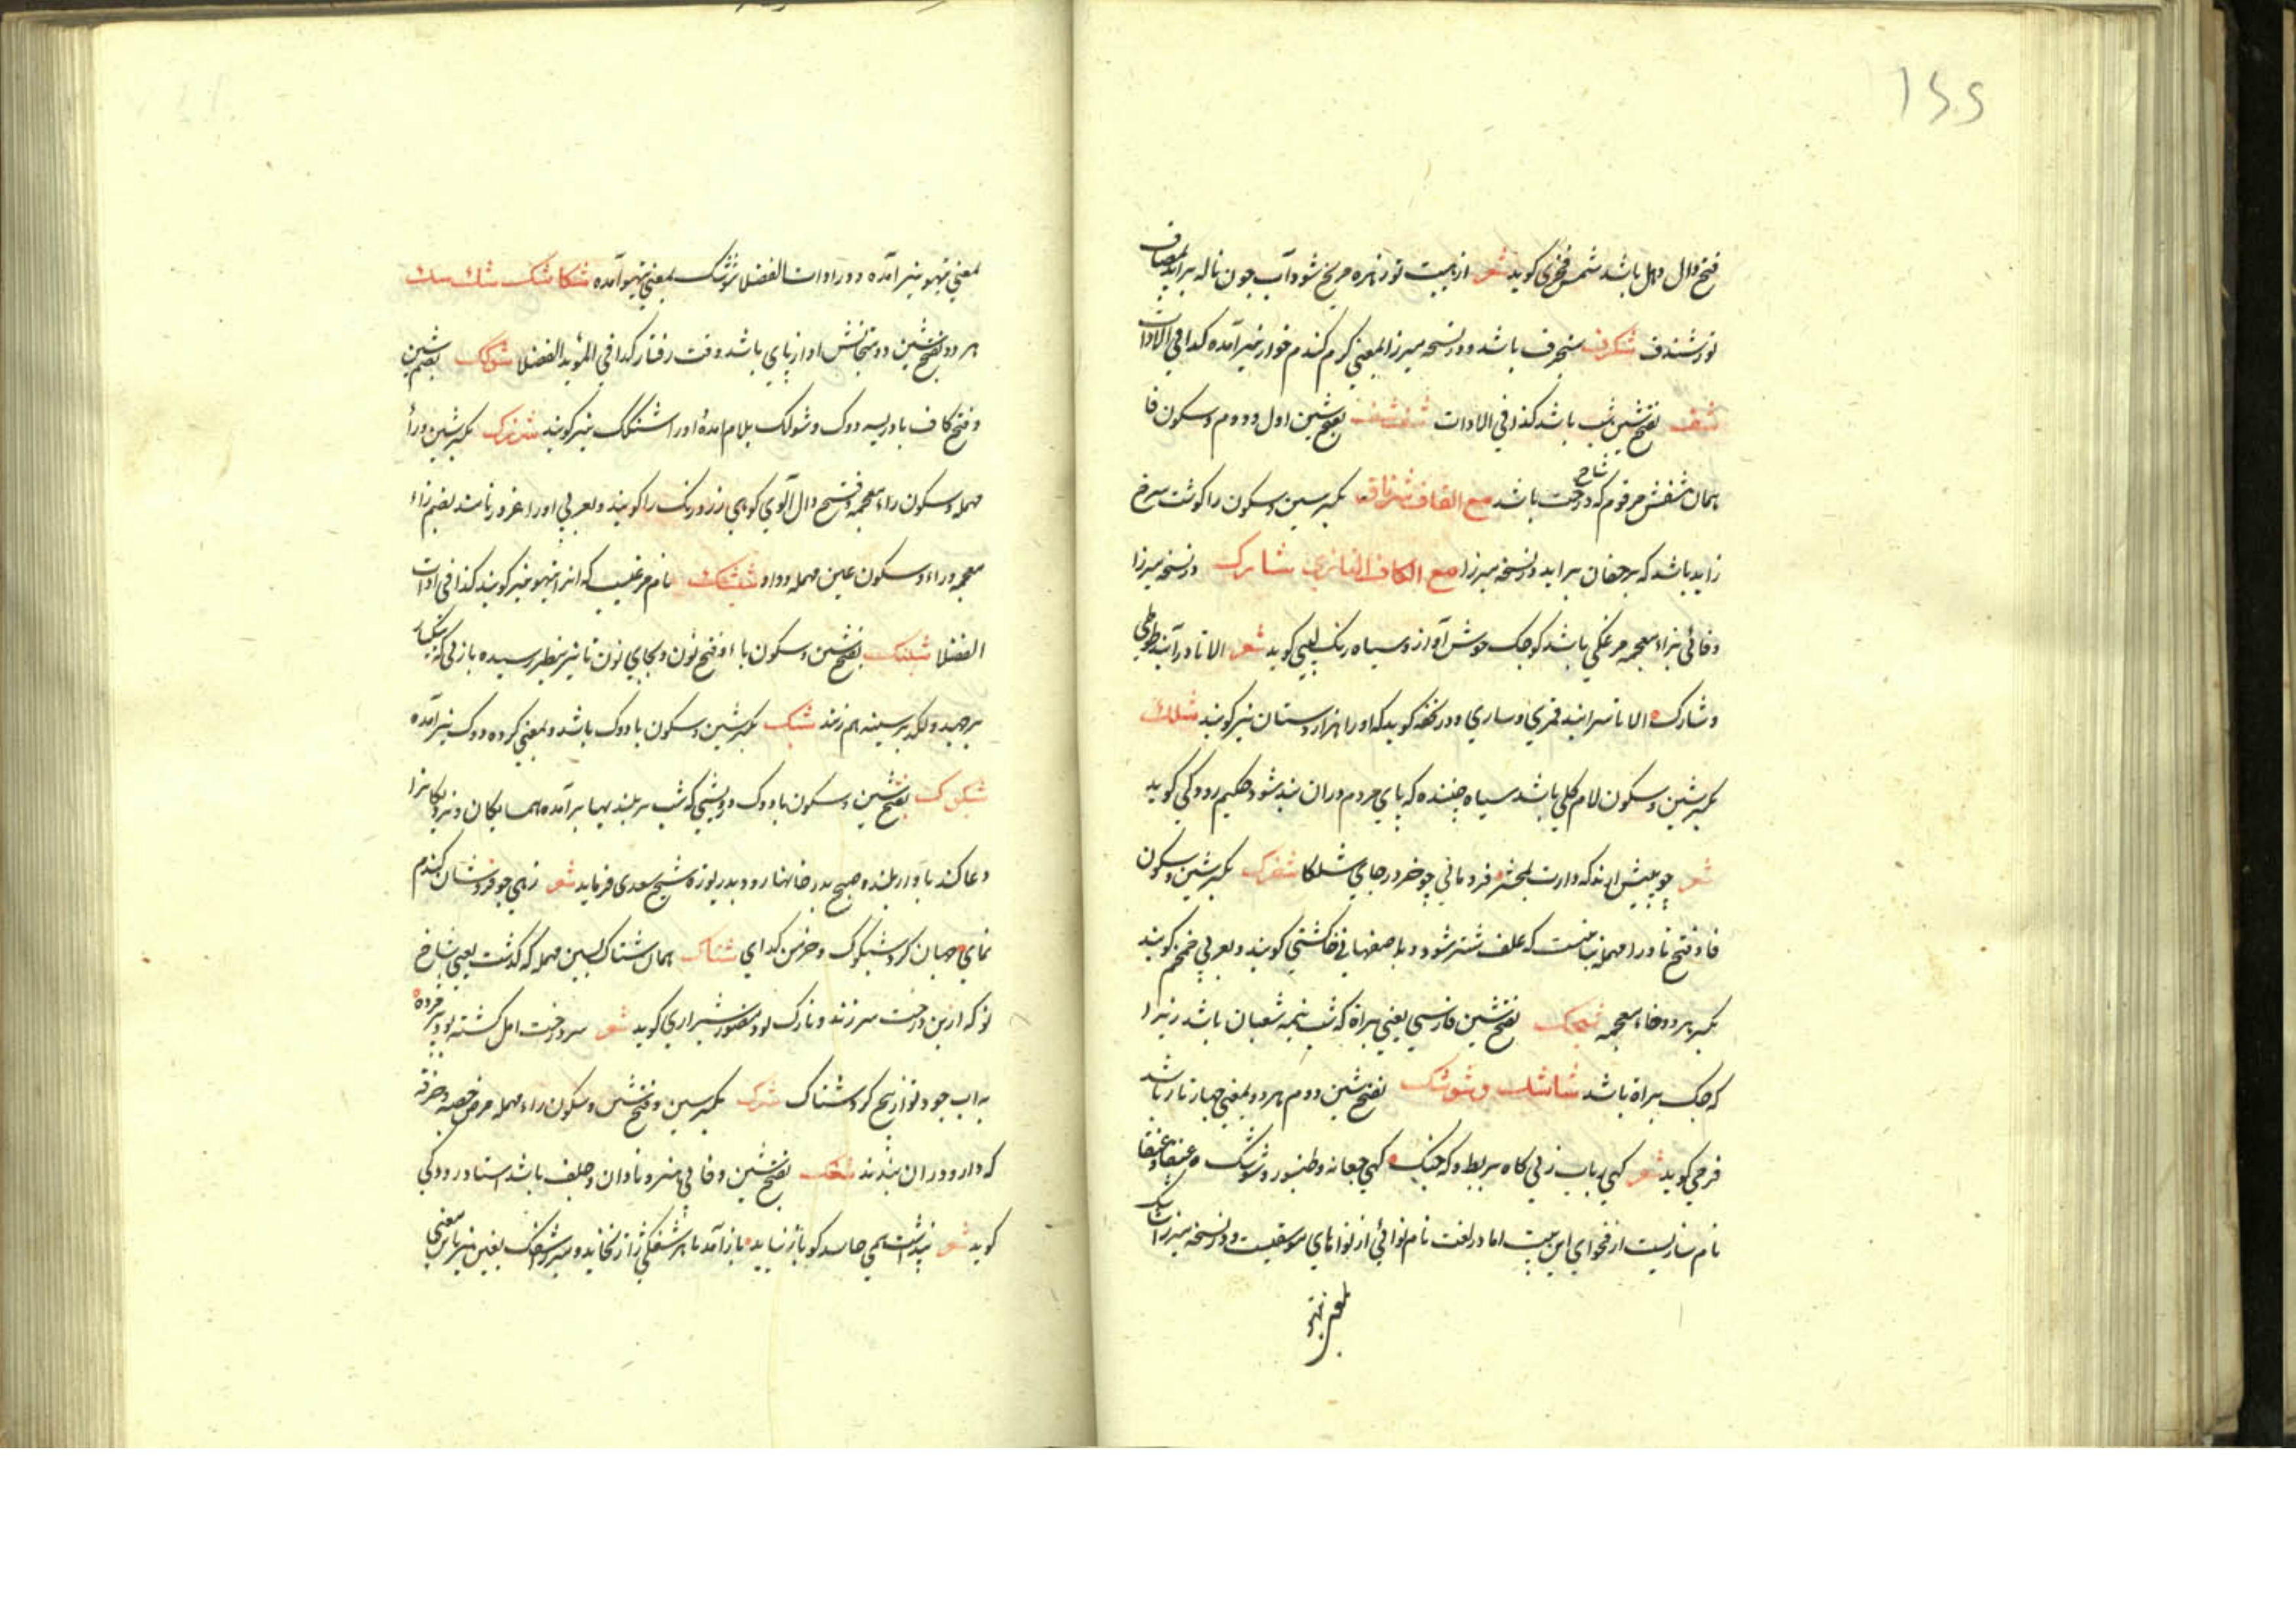 ۱۶۶
فتح دال دهل باشد شمس فخری کوید شعر از هیبت تو زهره مریخ شود آب چون ناله برآید بمصاف
تو ز شندف شنکرف سنجرف باشد و در نسخه میرزا بمعنی کرم کندم خوار نیز آمده کذا فی الادات
شف بفتح شین شب باشد کذا فی الادات شفشف بفتح شین اول و دوم و سکون فا
همان شفش مرقوم که شاخ درخت باشد مع القاف شرناق بکسر سین و سکون را کوشت سرخ
زاید باشد که بر جفان برآید در نسخه میرزا مع الکاف التازی شارک در نسخه میرزا
وفائی بزاء معجمه مرغکی باشد کوچک خوش آواز و سیاه رنک لبیبی کوید شعر الا تا درآیند طوطی
و شارک الا تا سرایند قمری و ساری و در تحفه کوید که او را هزاردستان نیز کویند شلک
بکسر شین و سکون لام کلی باشد سیاه چسنده که پای مردم در آن بند شود حکیم رودکی کوید
شعر چو پیش آرند کردارت بمحشر فرو مانی چو خر در جای شلکا شفترک بکسر شین و سکون
فا و فتح تا و را مهمله نباتیست که علف شتر شود و باصفهانی خاکشی کویند و بعربی خمخم کویند
بکسر هر دو خاء معجمه شبچک بفتح شین فارسی یعنی براة که شب نیمه شعبان باشد زیرا
که چک براة باشد شاشک و شوشک بفتح شین دوم هر دو بمعنی چهار تار باشد
فرخی کوید شعر کهی رباب زنی کاه بربط و که چنک کهی چغانه و طنبور و شوشک و عنقا و عنقا
نام سازیست از فحوای این بیت اما در لغت نام نوائی از نواهای موسیقیست و در نسخه میرزا شاشک
بمعنی تیهو
بمعنی تیهو نیز آمده و در ادات الفضلا شوشک بمعنی تیهو آمده شکاشک شک شک
هر دو بفتح شین و دو متجانس آواز پای باشد وقت رفتار کذا فی المؤید الفضلا شوکک بضم شین
و فتح کاف بادریسه دوک و شولک بلام آمده او را شنکک نیز کویند شزدک بکسر شین و را
مهمله و سکون راء معجمه و فتح دال آلوی کوهی زرد رنک را کویند و بعربی او را زعرور نامند بضم زاء
معجمه و راء و سکون عین مهمله و واو شیشک نام مرغیست که آنرا تیهو نیز کویند کذا فی ادات
الفضلا شبنک بفتح شین و سکون با و فتح نون و بجای نون تا نیز بنظر رسیده بازئی که یکبار
برجهند و لکد بر سینه هم زنند شبک بکسر شین و سکون با دوک باشد و بمعنی کروهه دوک نیز آمده
شبکوک بفتح شین و سکون با دوک درویشی که شب بر بلندیها برآمده همسایکان و نزدیکانرا
دعا کند بآواز بلند و صبح بدر خانهها رود بدریوزه شیخ سعدی فرماید شعر زهی جو فروشان کندم
نمای جهان کرد شبکوک و خرمن کدای شتاک همان ستاک بسین مهمله که کذشت یعنی شاخ
نو که از بن درخت سر زند و نازک بود منصور شیرازی کوید شعر سر درخت امل کشته بود پژمرده
به آب جود تو از بیخ کرد شتاک شرک بکسر سین و فتح شین و سکون راء مهمله مرض حصبه و خرقه
که دارو در آن بندند شفک بفتح شین و فا بی هنر و نادان و جلف باشد استاد رودکی
کوید شعر پنداشت همی حاسد کو باز نیاید باز آمد تا هر شفکی ژاژ نخاید و میرزا شفنک بغین نیز باین معنی